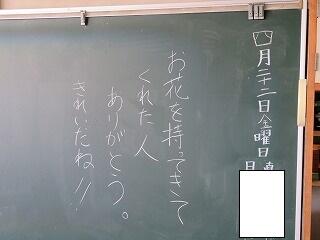 四月二十二日金曜日
日
お花を持ってきて
くれた人
ありがとう。
きれいだね!!